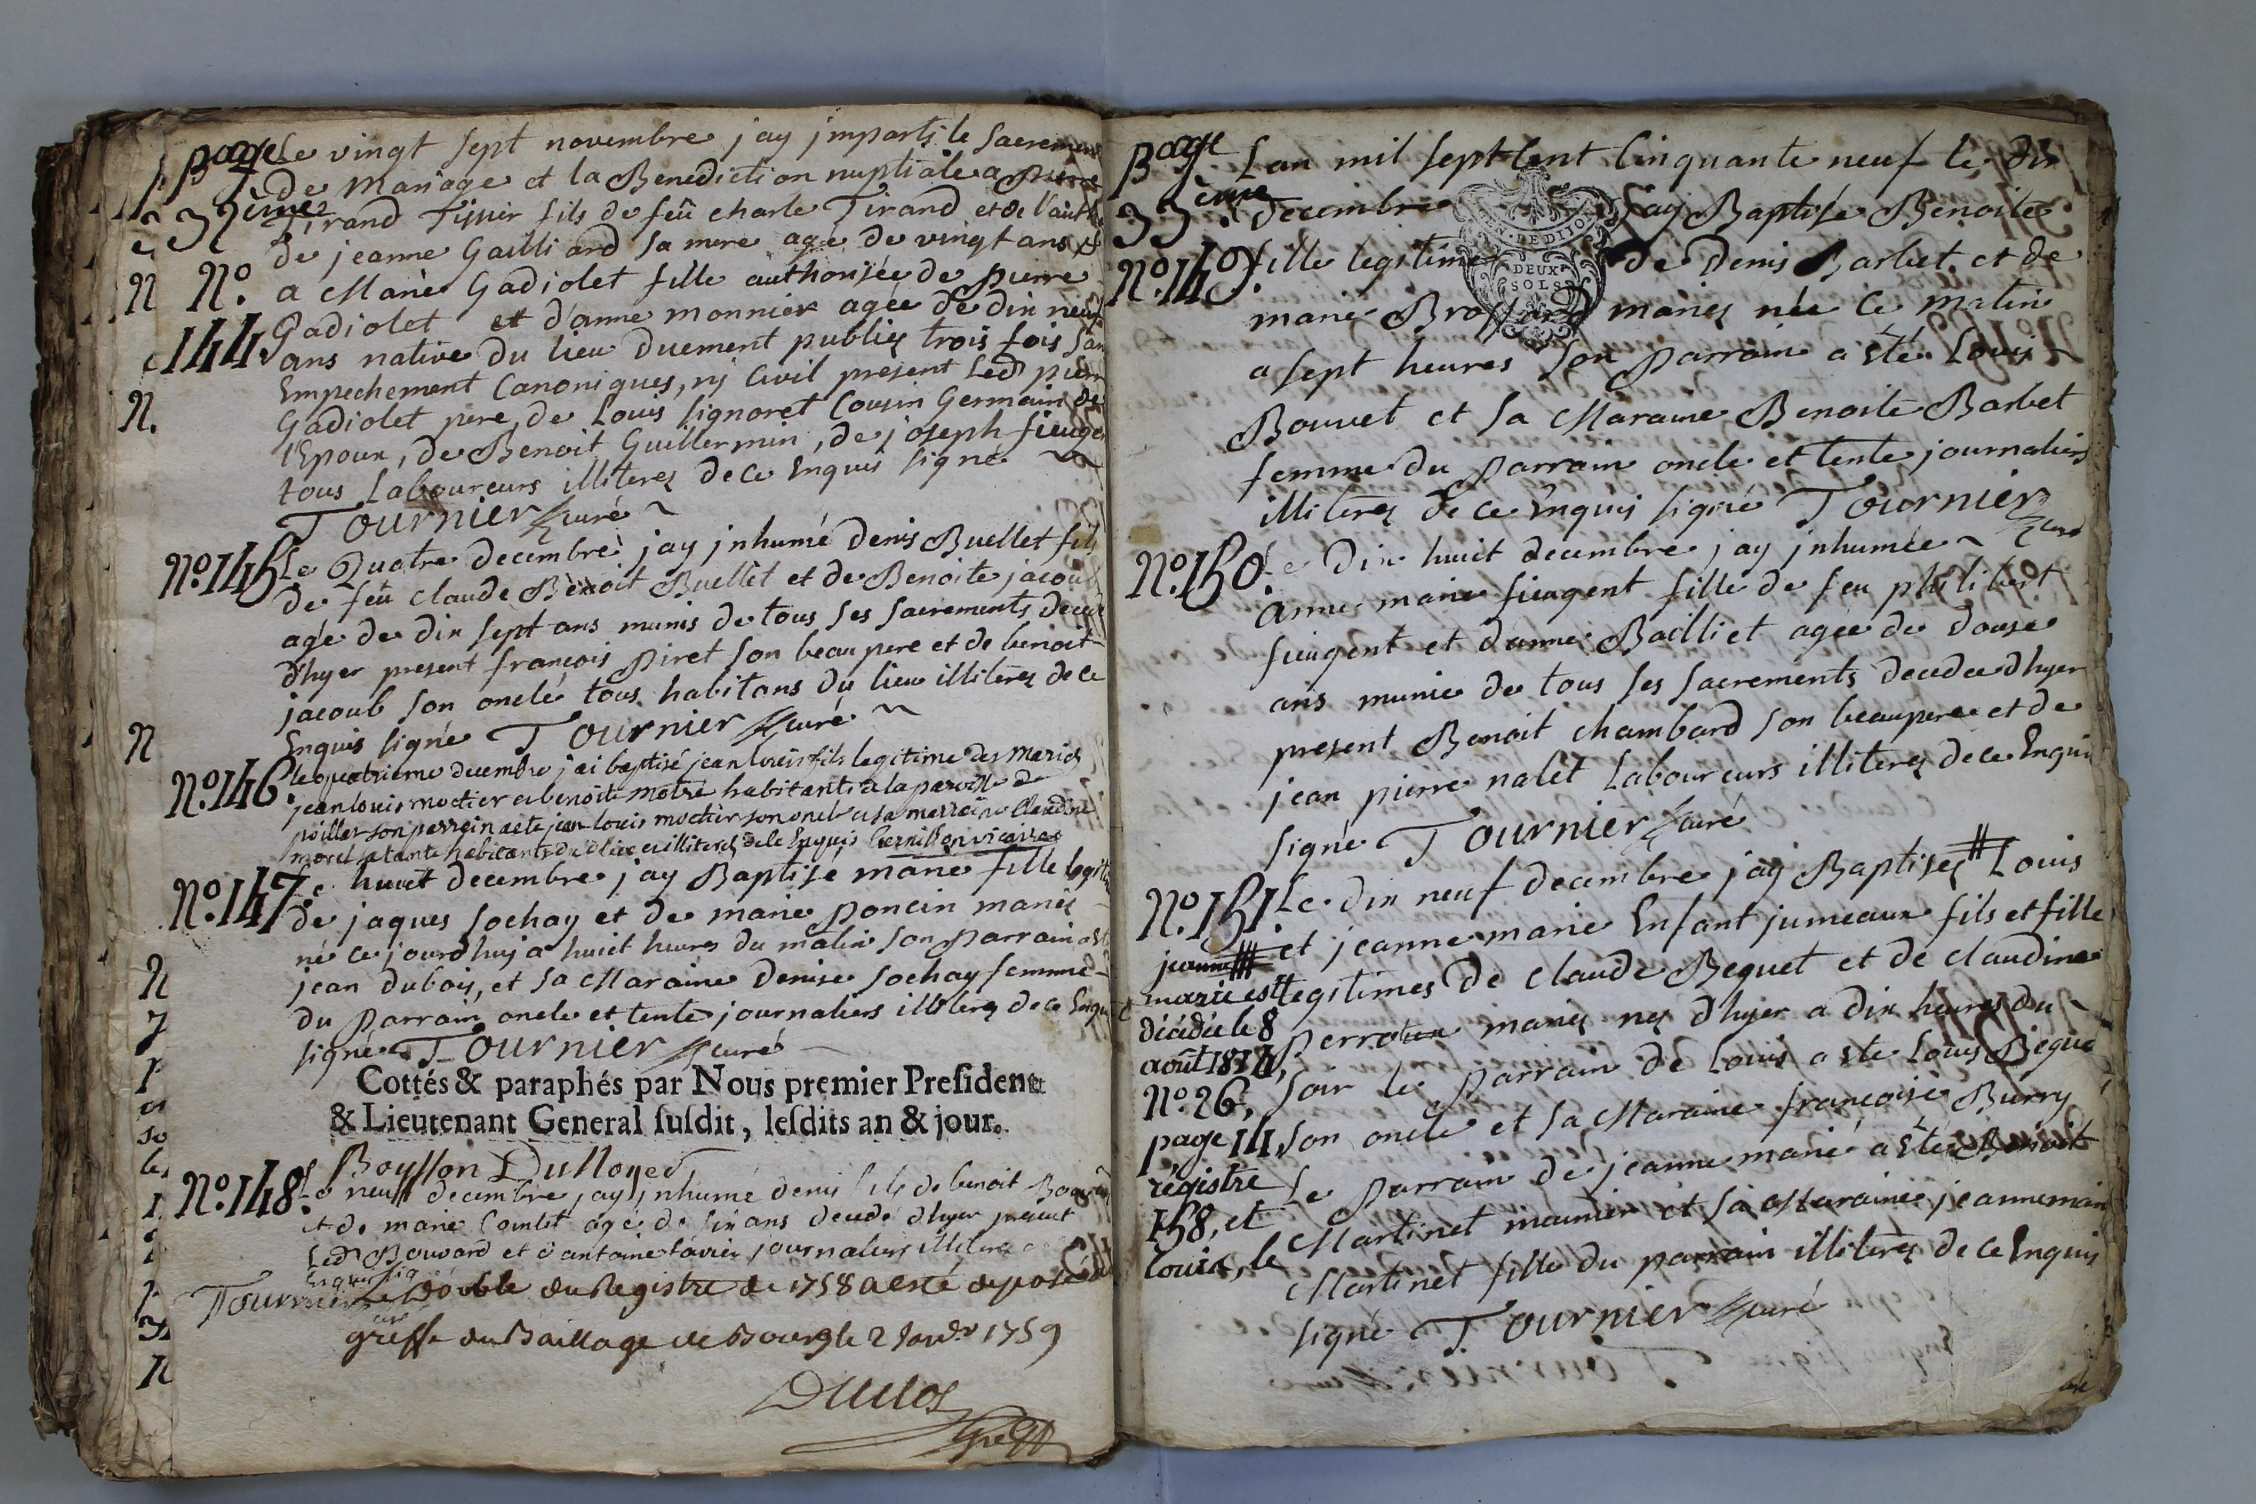 page
32eme
Le vingt sept novembre jay jmparti le Sacrement
de mariage et la Benediction nuptiale a pierre
Tirand Tissier fils de feû charle Tirand et de l'auth
de jeanne Gailliard sa mere agé de vingt ans &
No. 144
a Marie Gadiolet fille authorisée de pierre
Gadiolet et d'anne monnier agée de dix neuf
ans native du lieu duement publiez trois fois san
Empechement Canoniques, nj Civil present Led pierre
Gadiolet pere, de Louis Signoret Cousin Germain de
l'Epoux, de Benoit Guillermin, de joseph fieuge
tous Laboureurs illiterez de ce Enquis signé
Tournier curé
No. 145. Le Quatre decembre jay jnhumé Denis Buellet fils
de feû claude Benoit Buellet et de Benoite jacoub
agé de dix sept ans munis de tous ses sacrements decedé
d'hyer present françois Piret son beau pere et de benoit
jacoub son oncle tous habitans du lieu illiterez de ce
Enquis signé Tournier curé
No. 146. le quatrieme decembre j'ai baptisé jean louis fils legitime des mariés
jean louis moctier et benoite motré habitants a la paroisse de
poillat son perrein a ete jean louis moctier son oncle et sa merreine Claudine
morel sa tante habitants du dlieu et illiterés de ce Enquis Cernillon vicaire
No. 147. Le huict decembre jay Baptisé marie fille legit
de jaques Sochay et de marie poncin mariez
né ce jourdhuj a huict heures du matin son Parrain a esté
jean dubois, et sa Maraine Denise Sochay femme
du Parrain oncle et tente journaliers illiterez de ce Enquis
signé Tournier curé
Cottés & paraphés par Nous premier President
& Lieutenant General susdit, lesdits an & jour.
No. 148. Le neuf decembre jay jnhumé denis fils de benoit Bouvard
et de marie Comtet agé de six ans decedé d'hyer present
Led Bouvard et d'antoine tavier journaliers illiterez
Enquis signé
Tournier curé
Le double du Registre de 1758 a esté deposé au
greffe du Baillage de Bourg le 2 Janvr 1759
Duclos
Greff
page
33eme
Lan mil sept Cent Cinquante neuf le dix
decembre jay Baptisée Benoite
N. DE DIJON
DEUX
SOLS
No. 149. fille legitime de Denis Barbet et de
marie Brossard mariez née ce matin
a sept heures son parrain a esté Louis
Bouvet et sa Maraine Benoite Barbet
femme du parrain oncle et tente journaliers
illiterez de ce Enquis signé Tournier curé
No. 150. Le Dix huict decembre jay jnhumée
anne marie fieugent fille de feu philibert
fieugent et d'anne Bailliet agée de douse
ans munie de tous ses sacrements decedée d'hyer
present Benoit chambard son beaupere et de
jean pierre nalet Laboureurs illiterez de ce Enquis
signé Tournier curé
No. 151. Le dix neuf decembre jay Baptisez # Louis
et jeanne marie Enfant jumeaux fils et fille
legitimes de claude Bequet et de claudine
perrotin mariez nez d'hyer a dix heures du
soir le parrain de Louis a ete Louis Bequé
son oncle et sa Maraine françoise Burry
Le parrain de jeanne marie a este Benoit
Martinet meunier et sa Maraine jeannemarie
Martinet fille du parrain illiterez de ce Enquis
signé Tournier curé
jeanne
marie est
décédée le 8
août
No. 26,
page 14,
régistre
158, et
louis, le